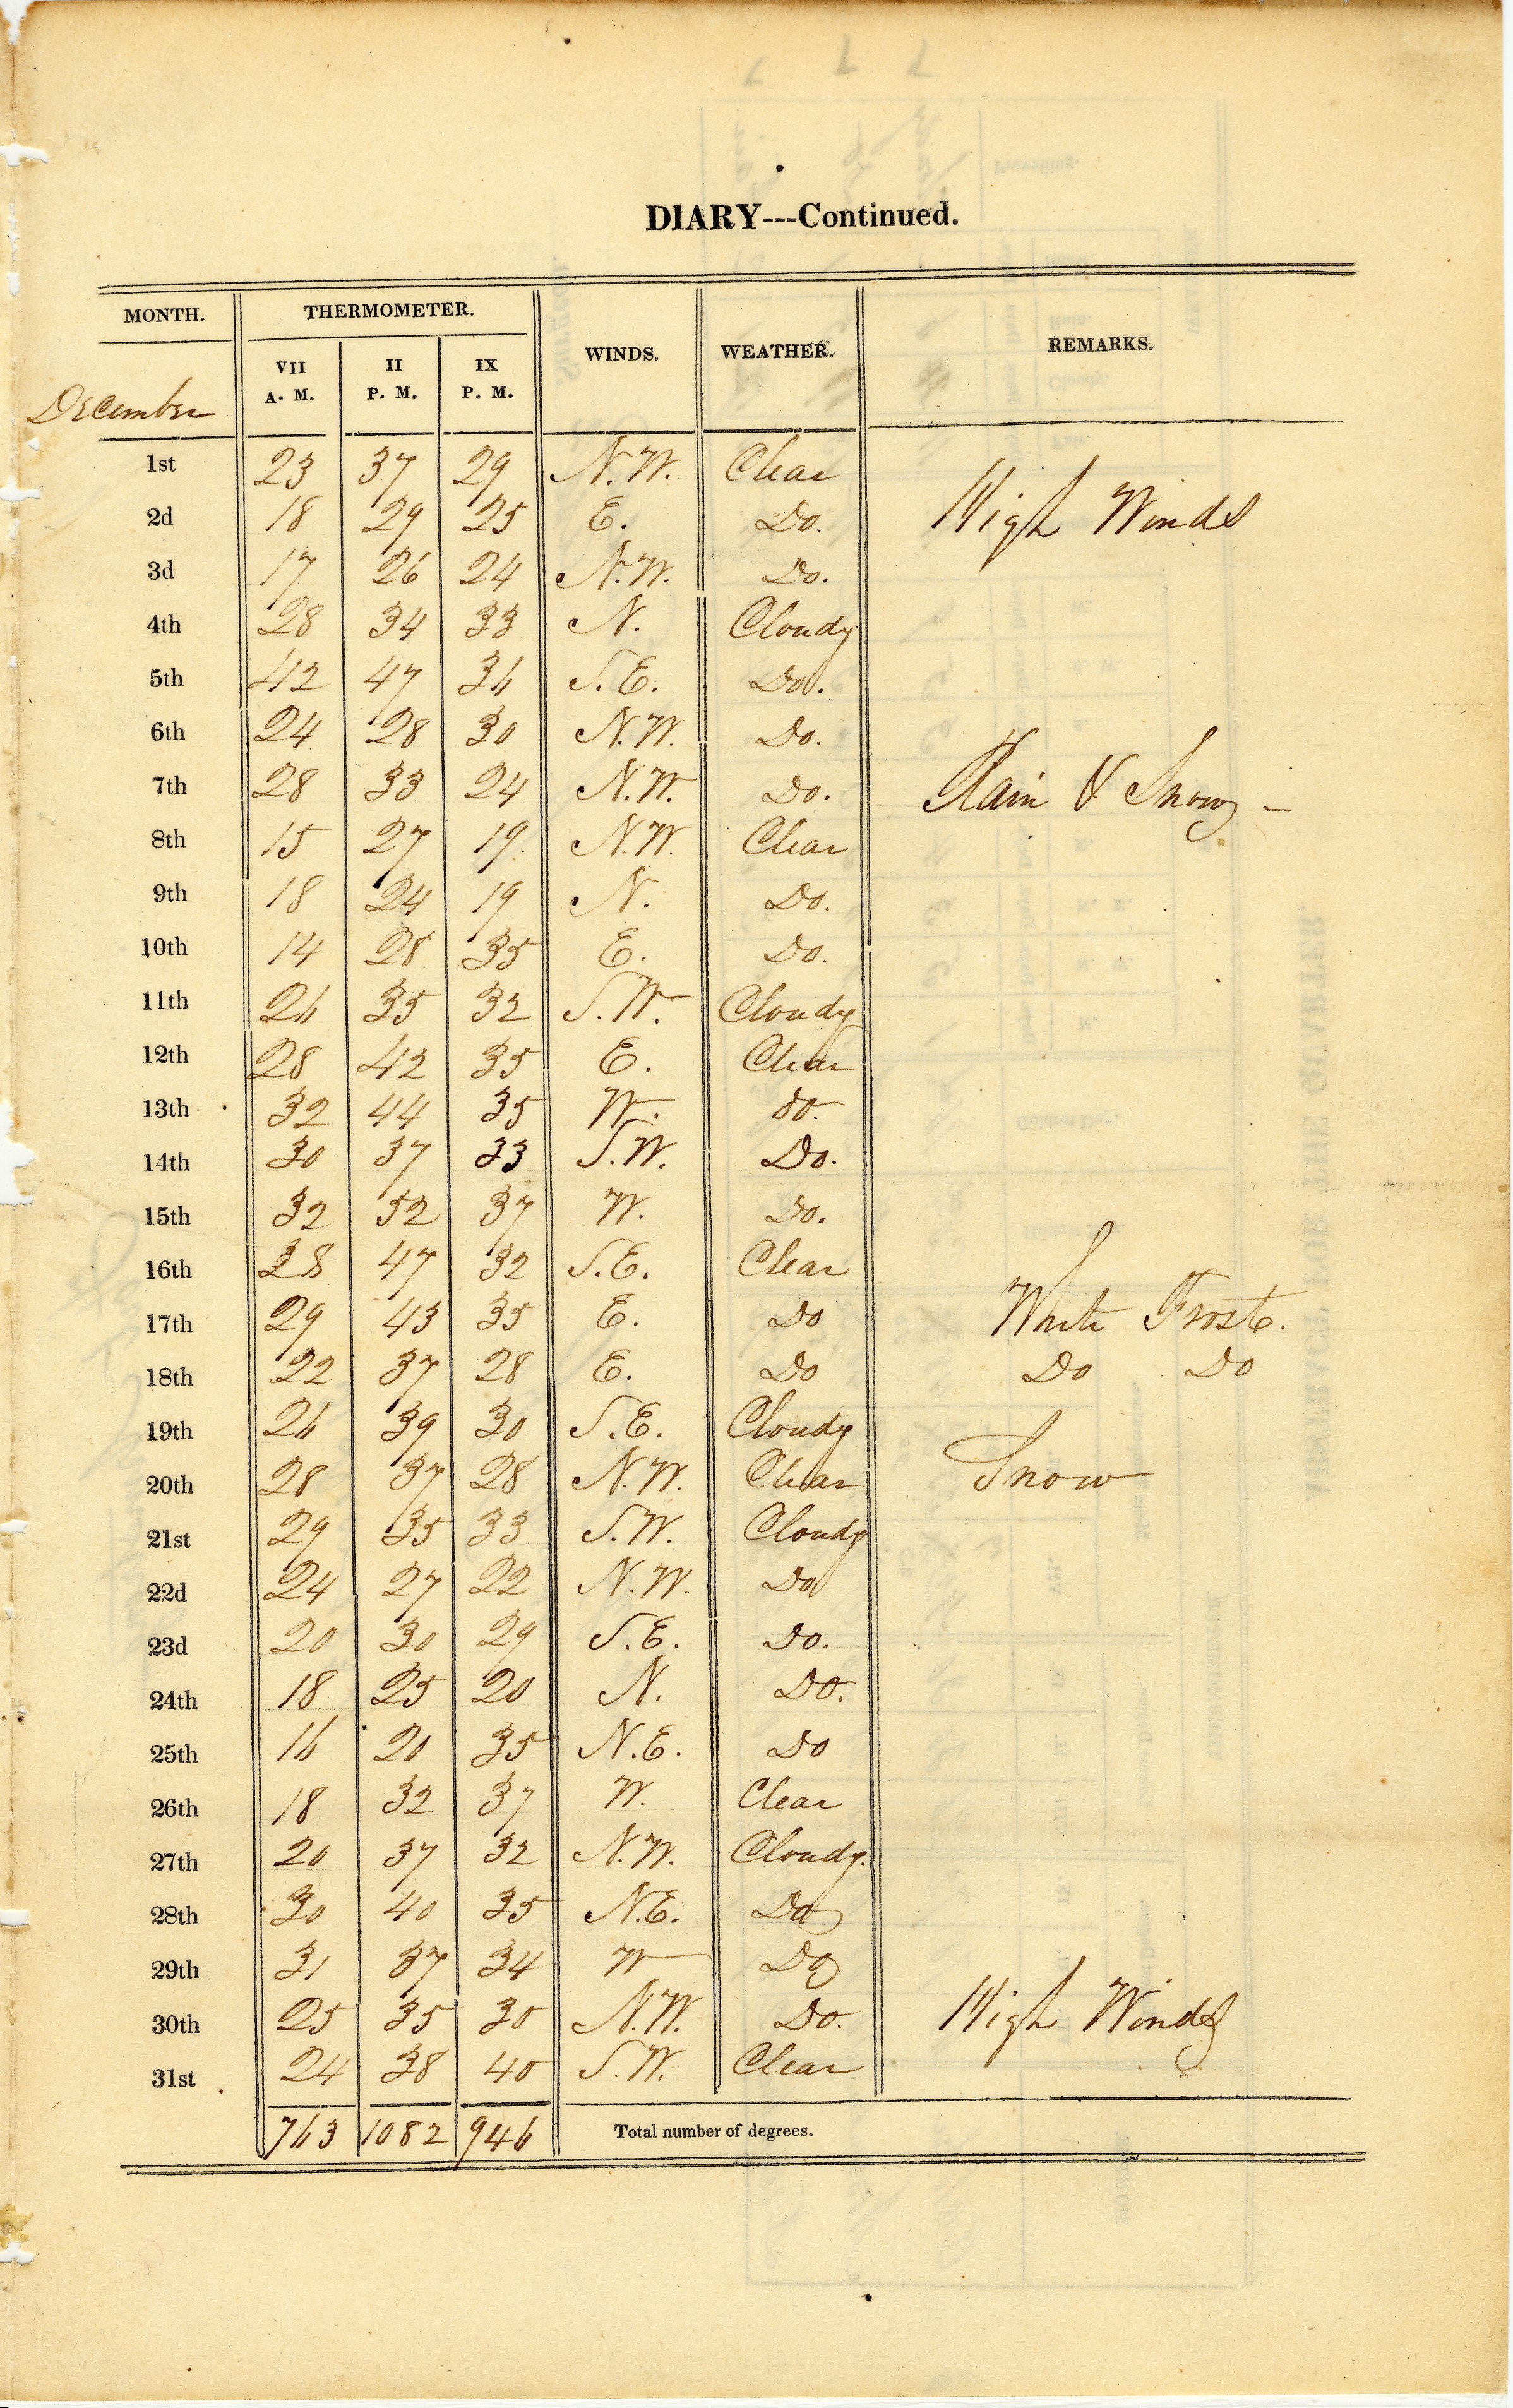 DIARY---Continued.
MONTH. THERMOMETER. WINDS. WEATHER. REMARKS.
VII A. M. II P. M. IX P. M.
December
1st 23 37 29 N.W. Clear
2d 18 29 25 E. Do. High Winds
3d 17 26 24 N.W. Do.
4th 28 34 33 N. Cloudy
5th 42 47 36 S.E. Do.
6th 24 28 30 N.W. Do.
7th 28 33 24 N.W. Do. Rain & Snow -
8th 15 27 19 N.W. Clear
9th 18 24 19 N. Do.
10th 14 28 35 E. Do.
11th 26 35 32 S.W. Cloudy
12th 28 42 35 E. Clear
13th 32 44 35 W. do.
14th 30 37 33 S.W. Do.
15th 32 52 37 W. Do.
16th 28 47 32 S.E. Clear
17th 29 43 35 E. Do White Frost.
18th 22 37 28 E. Do Do Do
19th 26 39 30 S.E. Cloudy
20th 28 37 28 N.W. Clear Snow
21st 29 35 33 S.W. Cloudy
22d 24 27 22 N.W. Do
23d 20 30 29 S.E. Do.
24th 18 25 20 N. Do.
25th 16 20 35 N.E. Do
26th 18 32 37 W. Clear
27th 20 37 32 N.W. Cloudy.
28th 30 40 35 N.E. Do
29th 31 37 34 W Do
30th 25 35 30 N.W. Do. High Winds
31st 24 38 40 S.W. Clear
763 1082 946 Total number of degrees.